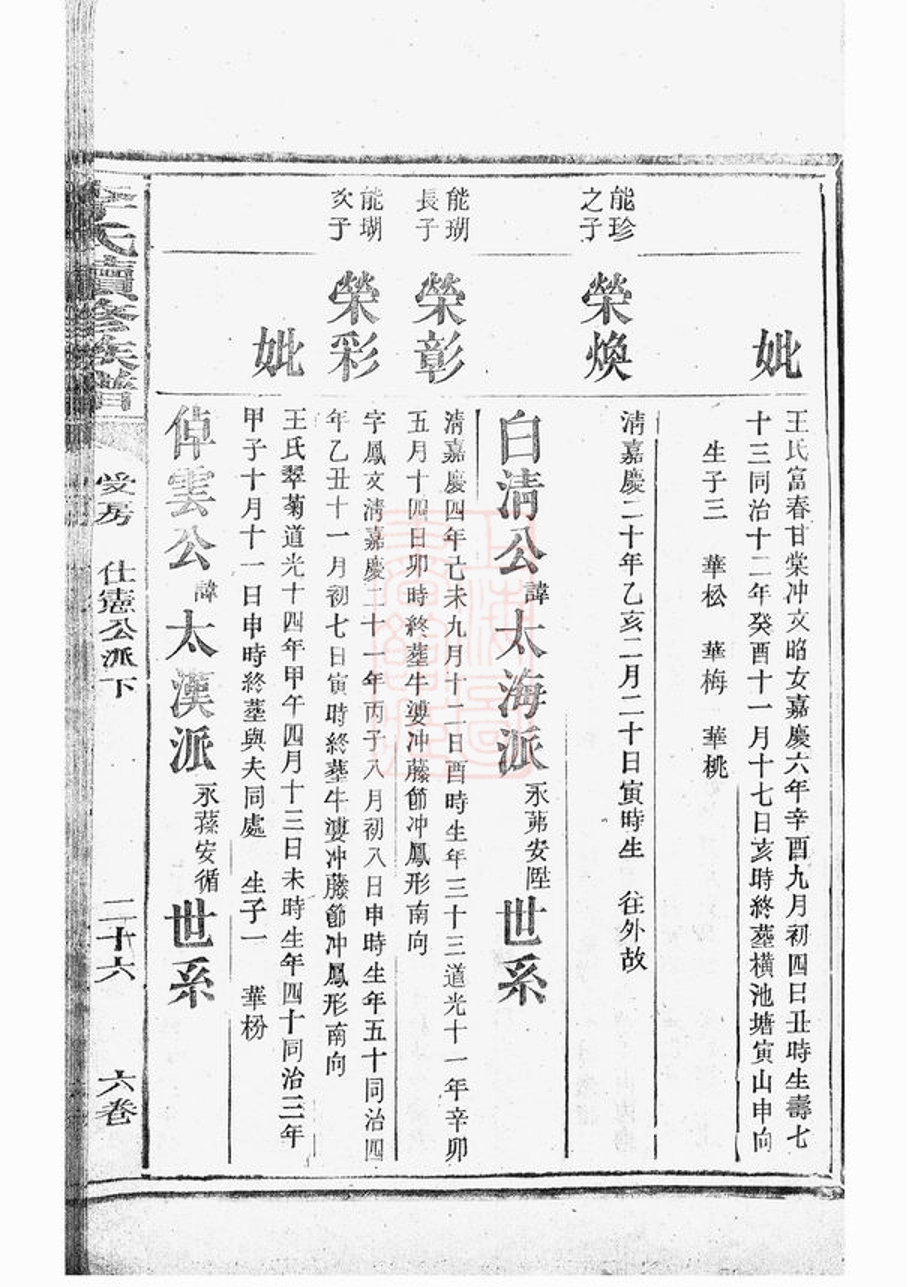 妣
王氏富春甘棠冲文昭女嘉慶六年辛酉九月初四日丑時生壽七
十三同治十二年癸酉十一月十七日亥時終塟橫池塘寅山申向
生子三 華松 華梅 華桃
能珍
之子
榮煥
清嘉慶二十年乙亥二月二十日寅時生 往外故
白清公諱太海派永茀安陞世系
能瑚
長子
榮彰
清嘉慶四年己未九月十二日酉時生年三十三道光十一年辛卯
五月十四日卯時終塟牛婆冲藤節冲鳳形南向
能瑚
次子
榮彩
字鳳文清嘉慶二十一年丙子八月初八日申時生年五十同治四
年乙丑十一月初七日寅時終塟牛婆冲藤節冲鳳形南向
妣
王氏翠菊道光十四年甲午四月十三日未時生年四十同治三年
甲子十月十一日申時終塟與夫同處 生子一 華枌
倬雲公諱太漢派永蓀安循世系
李氏續修族譜
受房 仕憲公派下 二十六 六卷